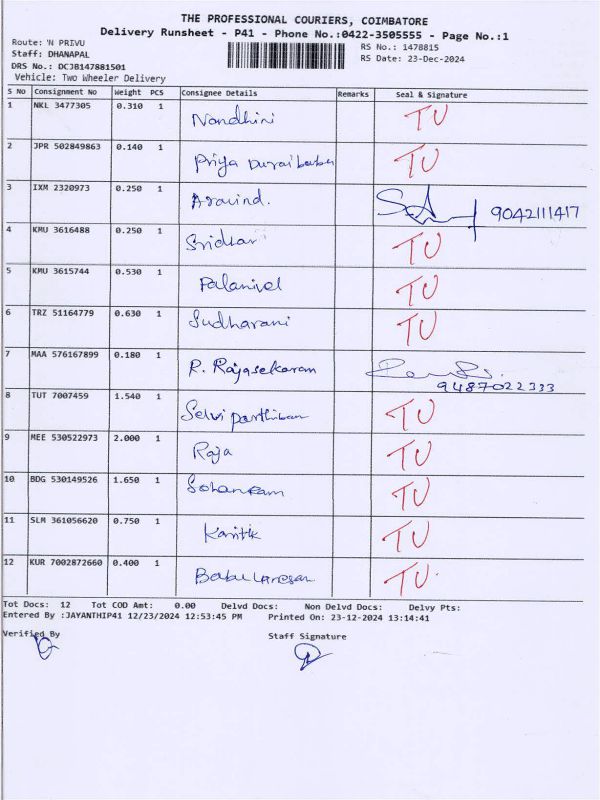 THE PROFESSIONAL COURIERS, COIMBATORE
Delivery Runsheet - P41 - Phone No.:0422-3505555 - Page No.:1
Route: 'N PRIVU
RS No.: 1478815
Staff: DHANAPAL
RS Date: 23-Dec-2024
DRS No.: DCJB147881501
Vehicle: Two Wheeler Delivery
S No Consignment No Weight PCS Consignee Details Remarks Seal & Signature
1 NKL 3477305 0.310 1 Nandhini TU
2 JPR 502849863 0.140 1 Priya Duraibabu TU
3 IXM 2320973 0.250 1 Aravind. 9042111417
4 KMU 3616488 0.250 1 Sridhar TU
5 KMU 3615744 0.530 1 Palanivel TU
6 TRZ 51164779 0.630 1 Sudharani TU
7 MAA 576167899 0.180 1 R. Rajasekaram
9487022333
8 TUT 7007459 1.540 1 Selvi Parthiban TU
9 MEE 530522973 2.000 1 Raja TU
10 BDG 530149526 1.650 1 TU
11 SLM 361056620 0.750 1 Kartik TU
12 KUR 7002872660 0.400 1 TU
Tot Docs: 12 Tot COD Amt: 0.00 Delvd Docs: Non Delvd Docs: Delvy Pts:
Entered By :JAYANTHIP41 12/23/2024 12:53:45 PM Printed On: 23-12-2024 13:14:41
Verified By
Staff Signature